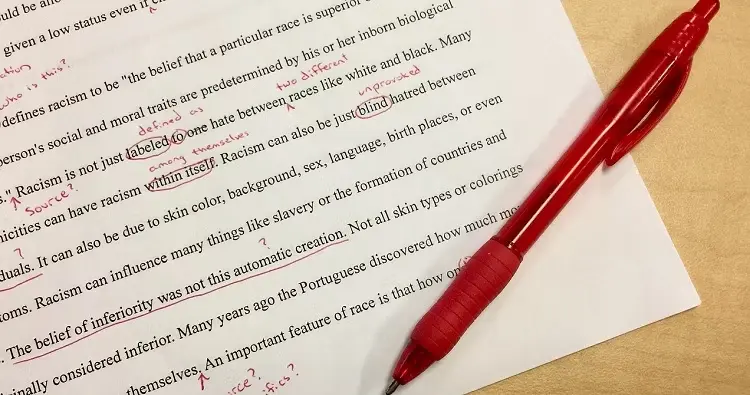 ould be
given a low status even if
ction
who is this?
defines racism to be "the belief that a particular race is superior
two different
person's social and moral traits are predetermined by his or her inborn biological
defined as
unprovoked
." Racism is not just labeled to one hate between races like white and black. Many
Source?
among themselves
nicities can have racism within itself. Racism can also be just blind hatred between
?
duals. It can also be due to skin color, background, sex, language, birth places, or even
?
toms. Racism can influence many things like slavery or the formation of countries and
. The belief of inferiority was not this automatic creation. Not all skin types or colorings
inally considered inferior. Many years ago the Portuguese discovered how much
themselves. An important feature of race is that how
urce?
ifics?